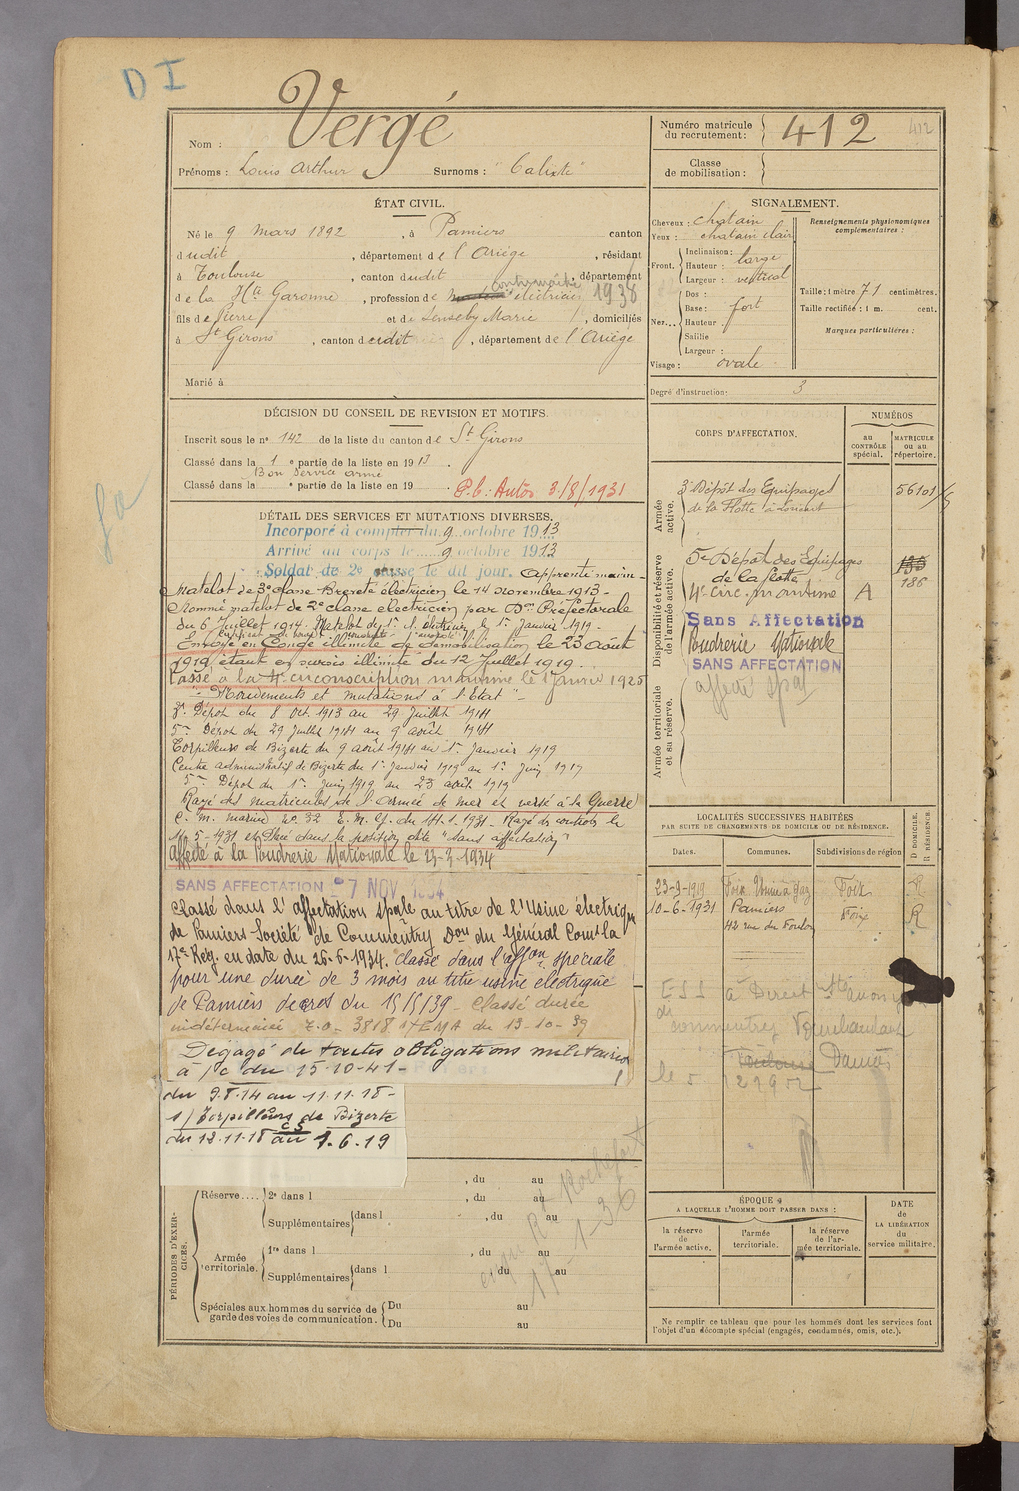 D I
Nom : Vergé
Prénoms : Louis Arthur Surnoms : "Calixte"
Numéro matricule du recrutement : 412 412
Classe de mobilisation :
ÉTAT CIVIL.
Né le 9 mars 1892, à Pamiers canton
dudit, département de l'Ariège, résidant
à Toulouse, canton dudit, département
de la Hte Garonne, profession de électricien 1938
fils de Pierre et de Senseby Marie, domiciliés
à St Girons, canton dudit, département de l'Ariège
Marié à
SIGNALEMENT.
Cheveux : chatain
Yeux : chatain clair
Front. Inclinaison :
Hauteur : large
Largeur : vertical
Nez... Dos :
Base : fort
Hauteur :
Saillie
Largeur :
Visage : ovale
Renseignements physionomiques complémentaires :
Taille : 1 mètre 71 centimètres.
Taille rectifiée : 1 m. cent.
Marques particulières :
Degré d'instruction : 3
DÉCISION DU CONSEIL DE REVISION ET MOTIFS.
Inscrit sous le n° 142 de la liste du canton de St Girons
Classé dans la 1e partie de la liste en 1913.
Bon service armé
Classé dans la e partie de la liste en 19
P.b. : Autos 3/8/1931
DÉTAIL DES SERVICES ET MUTATIONS DIVERSES.
Incorporé à compter du 9 octobre 1913
Arrivé au corps le 9 octobre 1913
Soldat de 2e classe le dit jour. Apprenti marin
Matelot de 3e classe Breveté électricien le 14 novembre 1913 -
Nommé matelot de 2e classe électricien par Don Préfectorale
du 6 Juillet 1914. Matelot de 1e cl. électricien le 1er Janvier 1919 -
Envoyé en Congé illimité de démobilisation le 23 Août
1919 étant en sursis illimité du 12 Juillet 1919.
Passé à la 4e circonscription maritime le 1 Janvier 1925
"Mouvements et mutations à l'Etat" -
3e Dépot du 8 oct. 1913 au 29 Juillet 1914
5me Dépot du 29 Juillet 1914 au 9 août 1914
Torpilleurs de Bizerte du 9 août 1914 au 1er Janvier 1919
Centre administratif de Bizerte du 1er Janvier 1919 au 1er Juin 1919
5me Dépot du 1er Juin 1919 au 23 août 1919
Rayé des matricules de l'armée de mer et versé à la Guerre
C. M. marine no 32 E. M. G. du 14.1.1931 - Rayé des controles le
1/5-1931 et placé dans la position dite "sans affectation"
Affecté à la Poudrerie Nationale le 23-3-1934
SANS AFFECTATION 7 NOV 1934
Classé dans l'affectation spale au titre de l'Usine électrique
de Pamiers - Société de Commentry Don du Général Comt la
17e Rég. en date du 26-6-1934. classé dans l'affon spéciale
pour une durée de 3 mois au titre usine électrique
de Pamiers decret du 15/5/39 - Classé durée
indéterminée 7.0 - 3818 1/EMA du 13-10-39
Dégagé de toutes obligations militaires
à /c du 15-10-41 -
du 9.8.14 au 11.11.18 -
s/ Torpilleurs de Bizerte
CS
du 12.11.18 au 1.6.19
CORPS D'AFFECTATION.
NUMÉROS
au CONTRÔLE spécial.
MATRICULE ou au répertoire.
Armée active.
3e Dépôt des Equipages 56101/5
de la Flotte à Lorient
Disponibilité et réserve de l'armée active.
5e Dépôt des Equipages
de la flotte 186
4e circ. maritime A
Sans Affectation
Poudrerie Nationale
SANS AFFECTATION
affecté spal
Armée territoriale et sa réserve.
LOCALITÉS SUCCESSIVES HABITÉES
PAR SUITE DE CHANGEMENTS DE DOMICILE OU DE RÉSIDENCE.
Dates. Communes. Subdivisions de région D DOMICILE. R RÉSIDENCE.
23-9-1919 Foix Usine à Gaz Foix R
10-6-1931 Pamiers Foix R
42 rue du Foulon
Toulouse
le 5 121952
ÉPOQUE
A LAQUELLE L'HOMME DOIT PASSER DANS :
la réserve de l'armée active.
l'armée territoriale.
la réserve de l'armée territoriale.
DATE de LA LIBÉRATION du service militaire.
Ne remplir ce tableau que pour les hommes dont les services font
l'objet d'un décompte spécial (engagés, condamnés, omis, etc.).
PÉRIODES D'EXERCICES.
, du au
Réserve.... 2e dans l , du au
Supplémentaires dans l , du au
Armée territoriale. 1re dans l , du au
Supplémentaires dans l du au
Spéciales aux hommes du service de garde des voies de communication. Du au
Du au
Rochefort
17-1-36